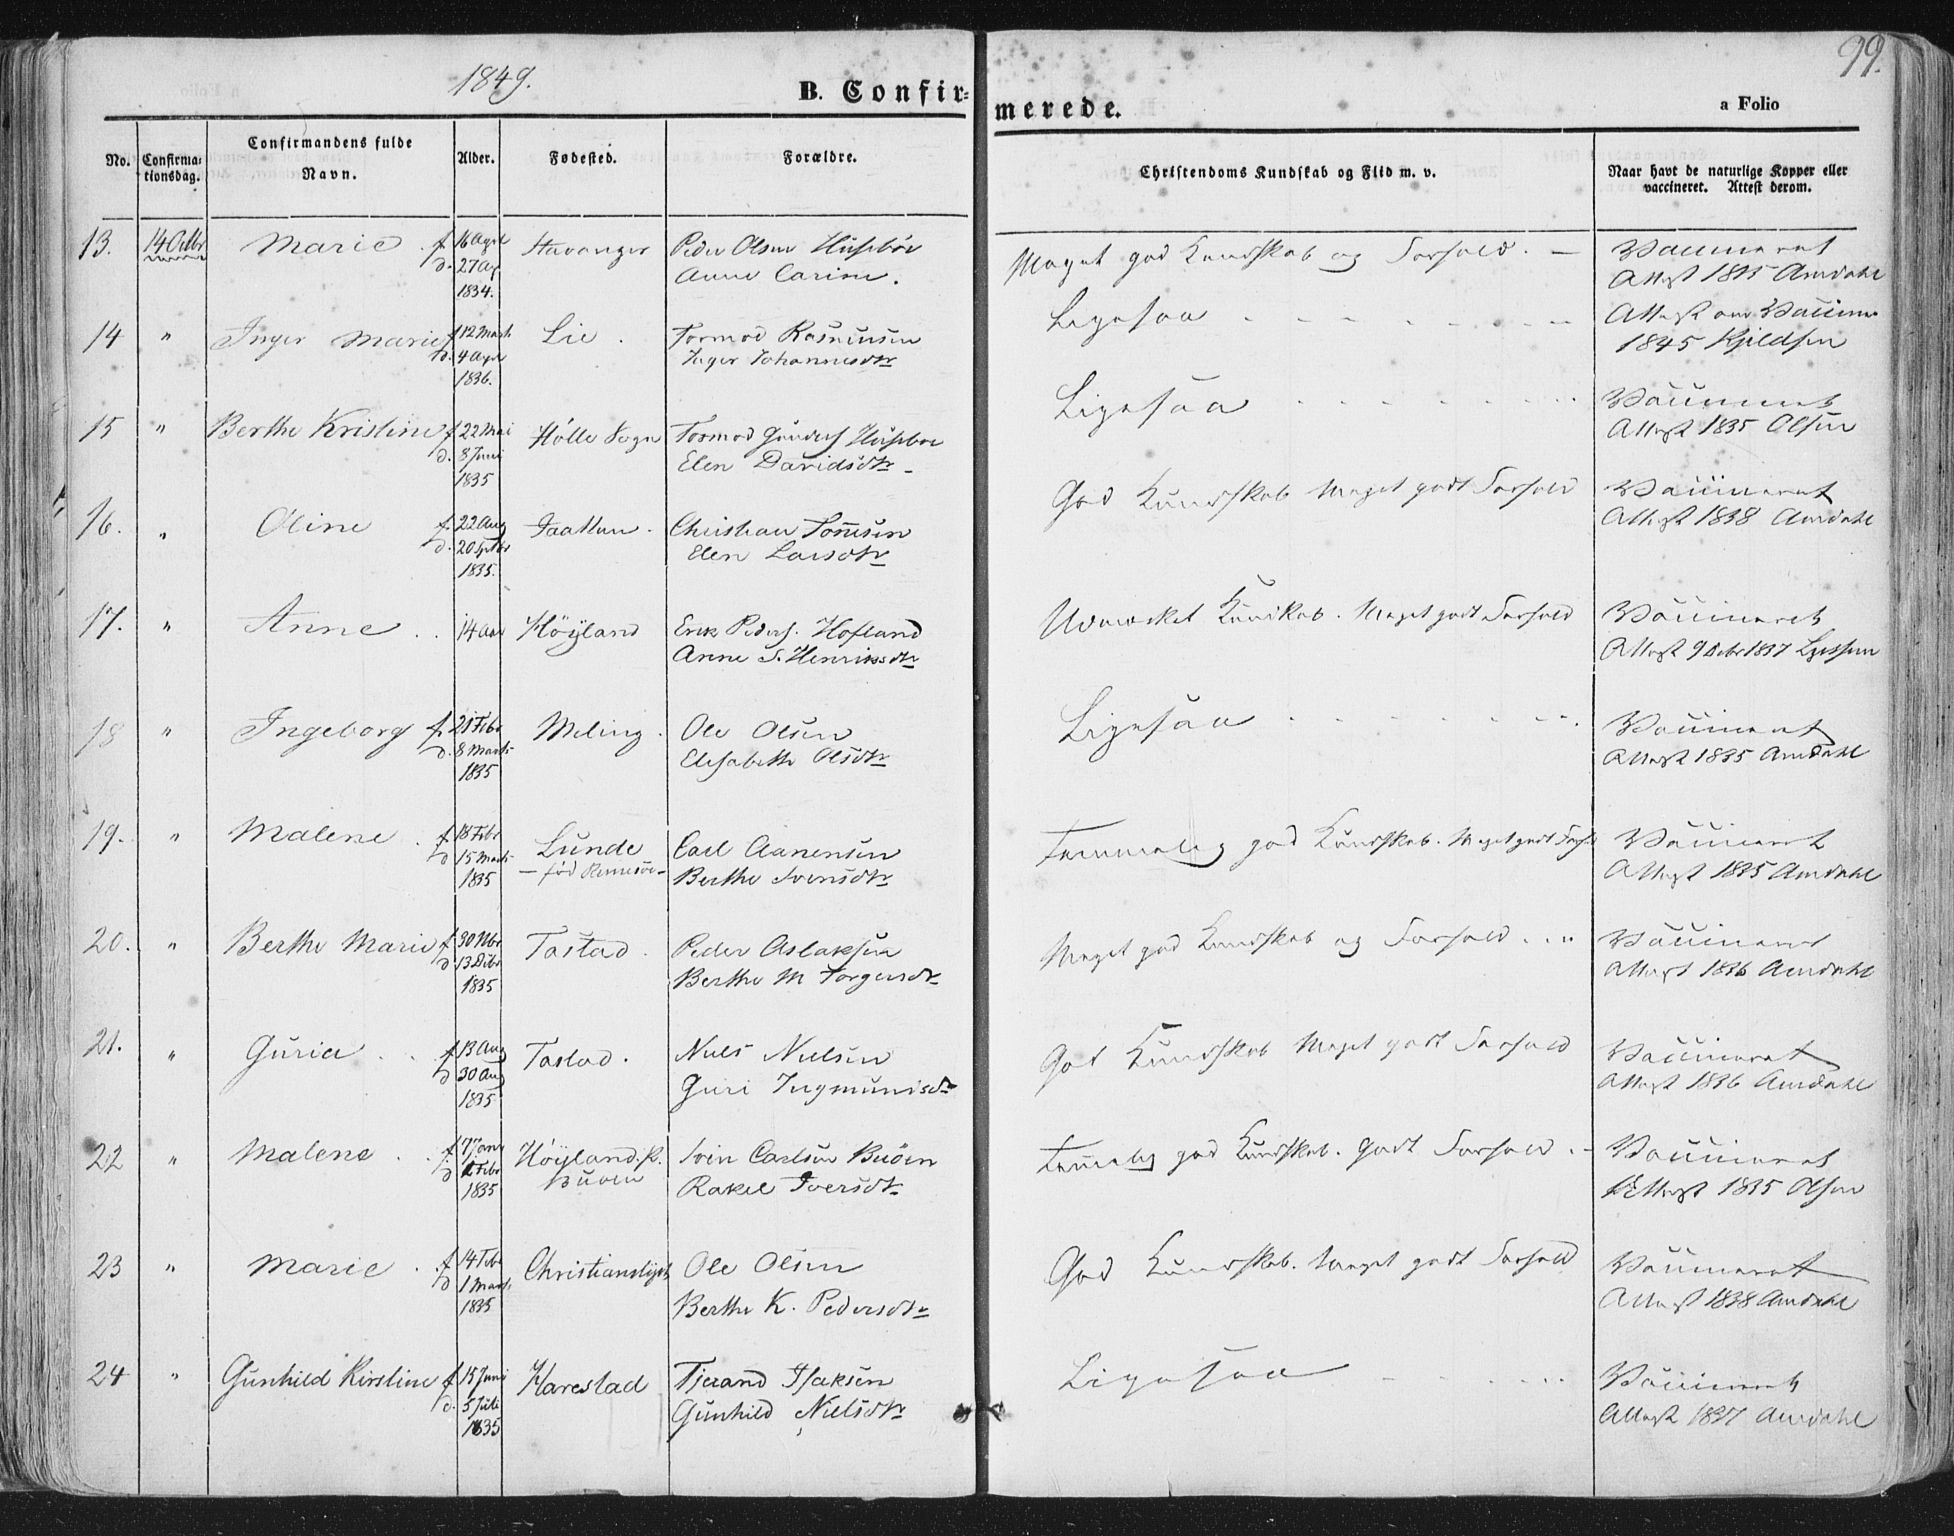 1849.
99.
B. Confir=
merede.
a Folio
No.
Confirma=
tionsdag.
Confirmandens fulde
Navn.
Alder.
Fødested.
Forældre.
Christendoms Kundskab og Flid m. v.
Naar havt de naturlige Kopper eller
vaccineret. Attest derom.
13. 14 Octbr Marie f. 16 April Stavanger Peder Olsen Husebøe Meget god Kundskab og Forhold. Vaccineret
d. 27 Ap Anne Carine. Attest 1835 Amdahl
1834.
14 " Inger Marie f 12 Marts Lie. Tormod Rasmusen Ligesaa Attest om Vaccine
d. 4 April Inger Johannesdtr 1845 Kjeldsen
1836.
15 " Berthe Kristine f 22 Mai Hölle Sogn Tormod Gunders Husebøe Ligesaa Vaccineret
d. 8 Juni Elen Davidsdtr Attest 1835 Olsen
1835
16. " Oline f. 22 Aug Christian Elen Larsdtr God Kundskab Meget godt Forhold Vaccineret
d. 20 Septbr Attest 1838 Amdahl
1835.
17. " Anne 14 Aar Höyland Erik Peders. Hofland Udmærket Kundskab. Meget godt Forhold Vaccineret
Anne S. Henriksdtr Attest 9 Debr 1837
18 " Ingeborg f. 21 Febr Meling. Ole Olsen Ligesaa Vaccineret
d. 8 Marts Elisabeth Olsdtr Attest 1835 Amdahl
1835
19. " Malene f 18 Febr Lunde Carl Aanensen Temmelig god Kundskab. Meget godt Forh Vaccineret
d 15 Marts – fød Rennesöe – Berthe Svensdtr Attest 1835 Amdahl
1835
20. " Berthe Marie f. 30 Nbr Tastad. Peder Aslaksen Meget god Kundskab og Forhold Vaccineret
d 13 Debr Berthe M Torgersdtr Attest 1836 Amdahl
1835
21. " Guria f 13 Aug Tastad. Niels Nielsen God Kundskab Meget godt Forhold Vaccineret
d 30 Aug Guri Ingmunsdtr Attest 1836 Amdahl
1835
22 " Malene f. 7 Janr Höyland. P. Sven Carlsen Buöen Temmelig god Kundskab. Godt Forhold Vaccineret
d Febr Buöen Rakel Iversdtr Attest 1835 Olsen
1835
23 " Marie f. 14 Febr Christianslyst Ole Olsen God Kundskab. Meget godt Forhold Vaccineret
d 1 Marts Berthe K. Pedersdtr Attest 1838 Amdahl
1835
24 " Gunhild Kirstine f 15 Juni Harestad Tjerand Isaksen Ligesaa Vaccineret
d. 5 Juli Gunhild Nielsdtr Attest 1837 Amdahl
1835